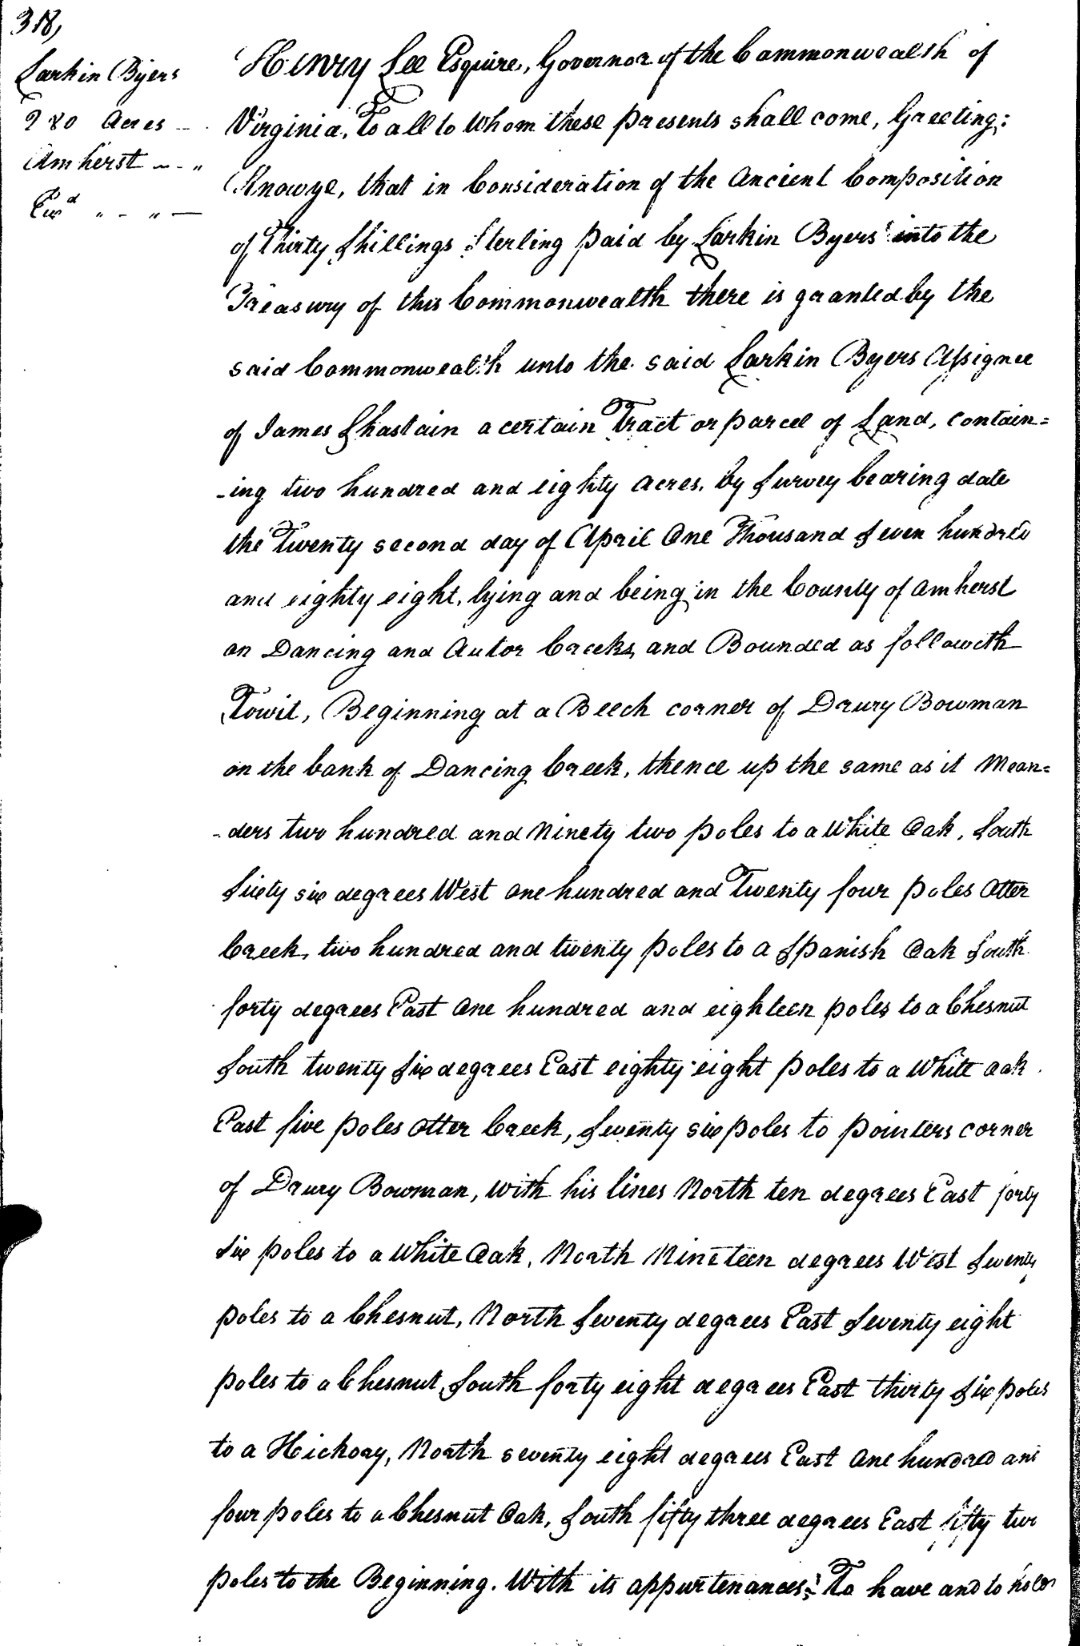 318,
Larkin Byers
280 Acres
Amherst
Exd
Henry Lee Esquire, Governor of the Commonwealth of
Virginia, To all to Whom these presents shall come, Greeting;
Know ye, that in Consideration of the Ancient Composition
of Thirty Shillings Sterling paid by Larkin Byers into the
Treasury of this Commonwealth there is granted by the
said Commonwealth unto the said Larkin Byers Assignee
of James Shastain a certain Tract or parcel of Land, contain=
-ing two hundred and eighty acres, by Survey bearing date
the Twenty second day of April One Thousand Seven hundred
and eighty eight, lying and being in the County of Amherst
on Dancing and Autor Creeks and Bounded as followeth
Towit, Beginning at a Beech corner of Drury Bowman
on the bank of Dancing Creek, thence up the same as it Mean=
-ders two hundred and Ninety two poles to a White Oak, South
Sixty six degrees West one hundred and Twenty four poles Otter
Creek, two hundred and twenty poles to a Spanish Oak South
forty degrees East One hundred and eighteen poles to a Chesnut
South twenty six degrees East eighty eight poles to a White oak
East five poles Otter Creek, Seventy six poles to pointers corner
of Drury Bowman, With his lines North ten degrees East forty
Six poles to a White Oak, North Nineteen degrees West Seventy
poles to a Chesnut, North Seventy degrees East Seventy eight
poles to a Chesnut, South forty eight degrees East thirty Six poles
to a Hickory, North seventy eight degrees East One hundred and
four poles to a Chesnut Oak, South fifty three degrees East fifty two
poles to the Beginning. With its appurtenances; To have and to hold